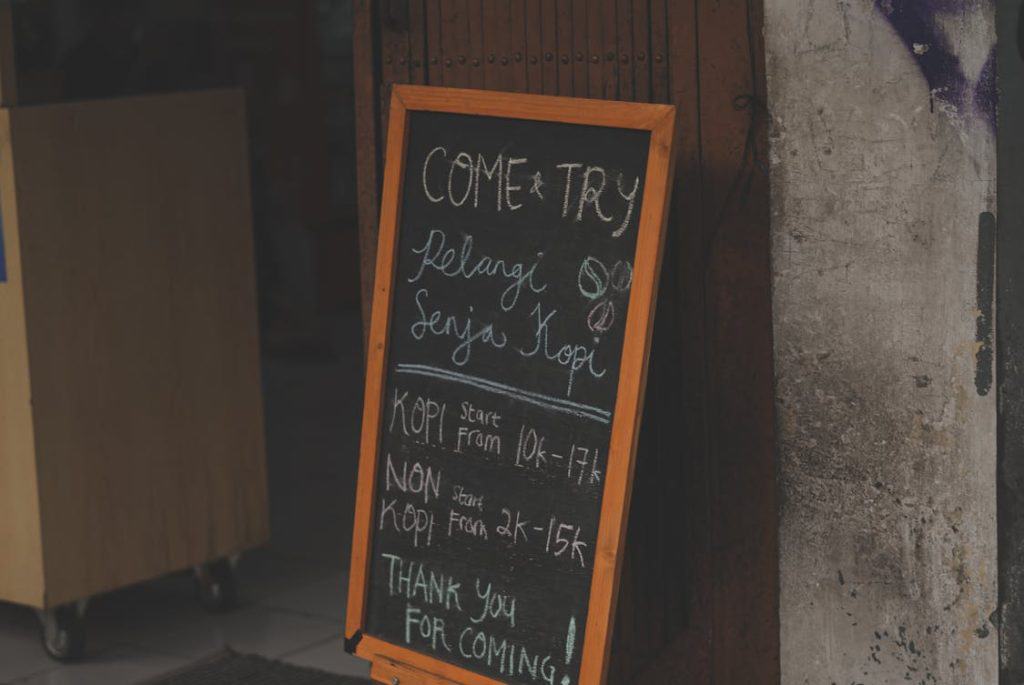 COME & TRY
Pelangi
Senja Kopi
KOPI Start From 10k-17k
NON KOPI Start From 2k-15k
THANK YOU
FOR COMING!